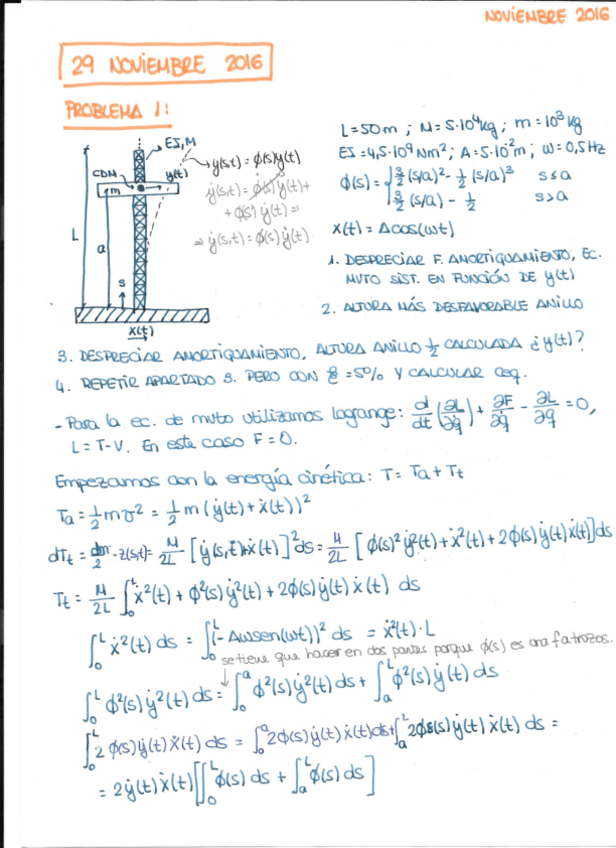 NOVIEMBRE 2016
29 NOVIEMBRE 2016
PROBLEMA 1:
L=50m ; M=5·10⁴kg ; m=10³kg
EI=4,5·10⁹Nm² ; A=5·10⁻²m ; ω=0,5Hz
ϕ(s)= { 3/2 (s/a)² - 1/2 (s/a)³ s≤a
3/2 (s/a) - 1/2 s>a
x(t)=Acos(ωt)
EI,M
CDM
m
y(t)
L
a
s
x(t)
y(s,t)=ϕ(s)y(t)
ẏ(s,t)=ϕ̇(s)y(t)+
+ϕ(s)ẏ(t)⇒
⇒ẏ(s,t)=ϕ(s)ẏ(t)
1. DESPRECIAR F. AMORTIGUAMIENTO, EC.
MVTO SIST. EN FUNCIÓN DE y(t)
2. ALTURA MÁS DESFAVORABLE ANILLO
3. DESPRECIAR AMORTIGUAMIENTO, ALTURA ANILLO 1/2 CALCULADA ¿y(t)?
4. REPETIR APARTADO 3. PERO CON ξ=5% Y CALCULAR Ceq.
- Para la ec. de mvto utilizamos Lagrange: d/dt (∂L/∂q̇) + ∂F/∂q̇ - ∂L/∂q = 0,
L=T-V. En este caso F=0.
Empezamos con la energía cinética: T= Ta+Tt
Ta = 1/2 mv² = 1/2 m (ẏ(t)+ẋ(t))²
dTt = dm/2 · z(s,t)= M/2L [ẏ(s,t)+ẋ(t)]² ds = M/2L [ϕ(s)²ẏ²(t)+ẋ²(t)+2ϕ(s)ẏ(t)ẋ(t)]ds
Tt = M/2L ∫₀ᴸ ẋ²(t)+ϕ²(s)ẏ²(t)+2ϕ(s)ẏ(t)ẋ(t) ds
∫₀ᴸ ẋ²(t) ds = ∫₀ᴸ (-Aωsen(ωt))² ds = ẋ²(t)·L
se tiene que hacer en dos partes porque ϕ(s) es una f a trozos.
∫₀ᴸ ϕ²(s)ẏ²(t) ds = ∫₀ᵃ ϕ²(s)ẏ²(t) ds + ∫ₐᴸ ϕ²(s)ẏ(t) ds
∫₀ᴸ 2ϕ(s)ẏ(t)ẋ(t) ds = ∫₀ᵃ 2ϕ(s)ẏ(t)ẋ(t)ds+∫ₐᴸ 2ϕ(s)ẏ(t)ẋ(t) ds =
= 2ẏ(t)ẋ(t) [∫₀ᴸ ϕ(s) ds + ∫ₐᴸ ϕ(s) ds]